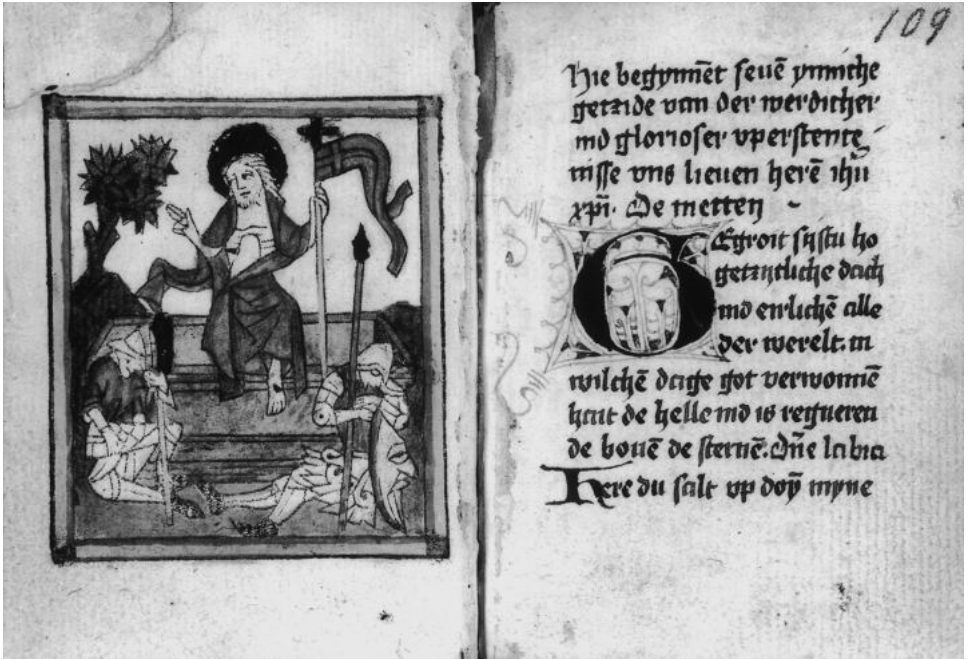 109
Hie begynnēt seuē ynniche
getzide van der werdicher
ind glorioser vperstente
nisse vns lieuen herē ihū
xp̄i. De metten
Gegroit sistu ho
getzitliche dach
ind eirlichē alle
der werelt. in
wilchē dage got verwonnē
hait de helle ind is regneren
de bouē de sternē. Dn̄e labia
Here du salt vp doȳ myne